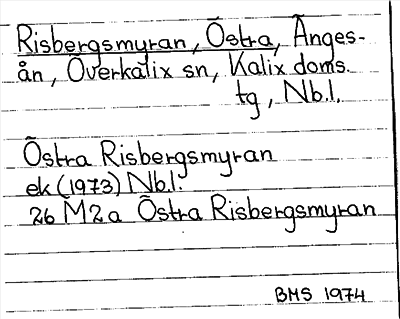 Risbergsmyran, Östra, Änges-
ån, Överkalix sn, Kalix doms.
tg, Nb.l.
Östra Risbergsmyran
ek (1973) Nb.l:
26 M2a Östra Risbergsmyran
BMS 1974